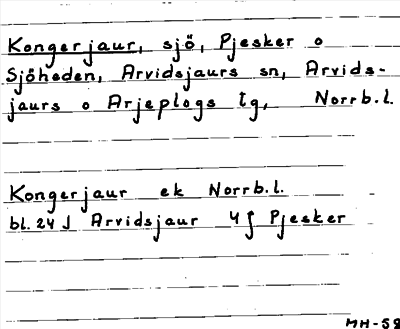 Kongerjaur, sjö, Pjesker o
Sjöheden, Arvidsjaurs sn, Arvids-
jaurs o Arjeplogs tg, Norrb.l.
Kongerjaur ek Norrb.l.
bl. 24 J Arvidsjaur 4 f Pjesker
HH-52